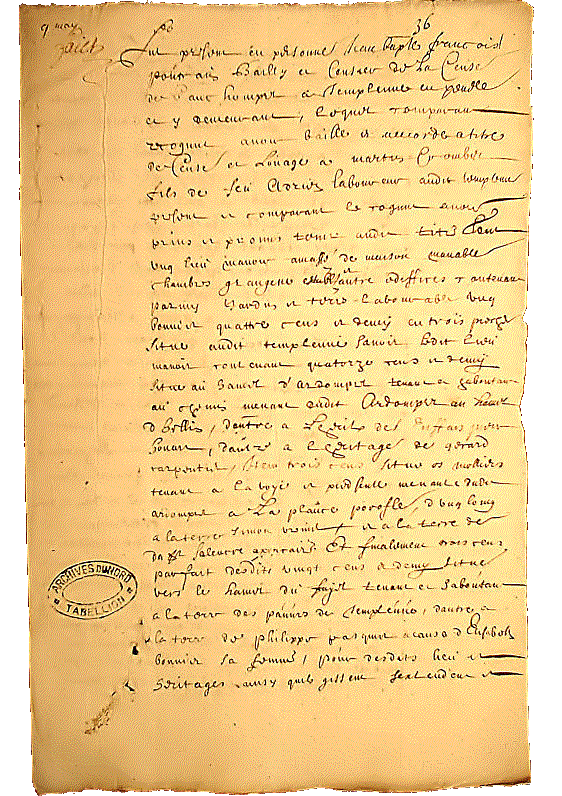 9 may
36
faict
fut present en personne Jean baptiste francois
bailly et Censier de La Cense
de a Templeuve en peule
et y demeurant, lequel comparant
recognut avoir baille et accorde a titre
de Cense et Louage a martin Crombet
fils de feu Adrien laboureur audit templeuve
present et comparant le cognut avoir
prins et promis tenir audit titre
ung lieu manoir amassé de maison manable
chambres grangerie estable autre ediffices contenant
parmy Jardin et terre Labourable ung
bonnier quattre cens et demy en trois pieches
situe audit templeuve scavoir Ledit Lieu
manoir contenant quatorze cens et demy
situe au hamel d'Ardompret tenant et haboutant
au chemin menant dudit Ardompret au hamel
d'autre a L'heritage des
d'autre a L'heritage de gerard
carpentier, trois cens situe
tenant a la voye et piedsente menant dudit
a La plache d'ung long
a la terre Simon et a la terre de
Et finalement trois cens
parfait desdits vingt cens et demy situe
vers le hamel du tenant et haboutant
a la terre des pauvres de Templeuve, dautre a
la terre de philippe pasquier a cause d'Elisabeth
bonnier sa femme, pour desdits lieu et
heritages ainsy quils gissent sextendent et
ARCHIVES DU NORD
TABELLION